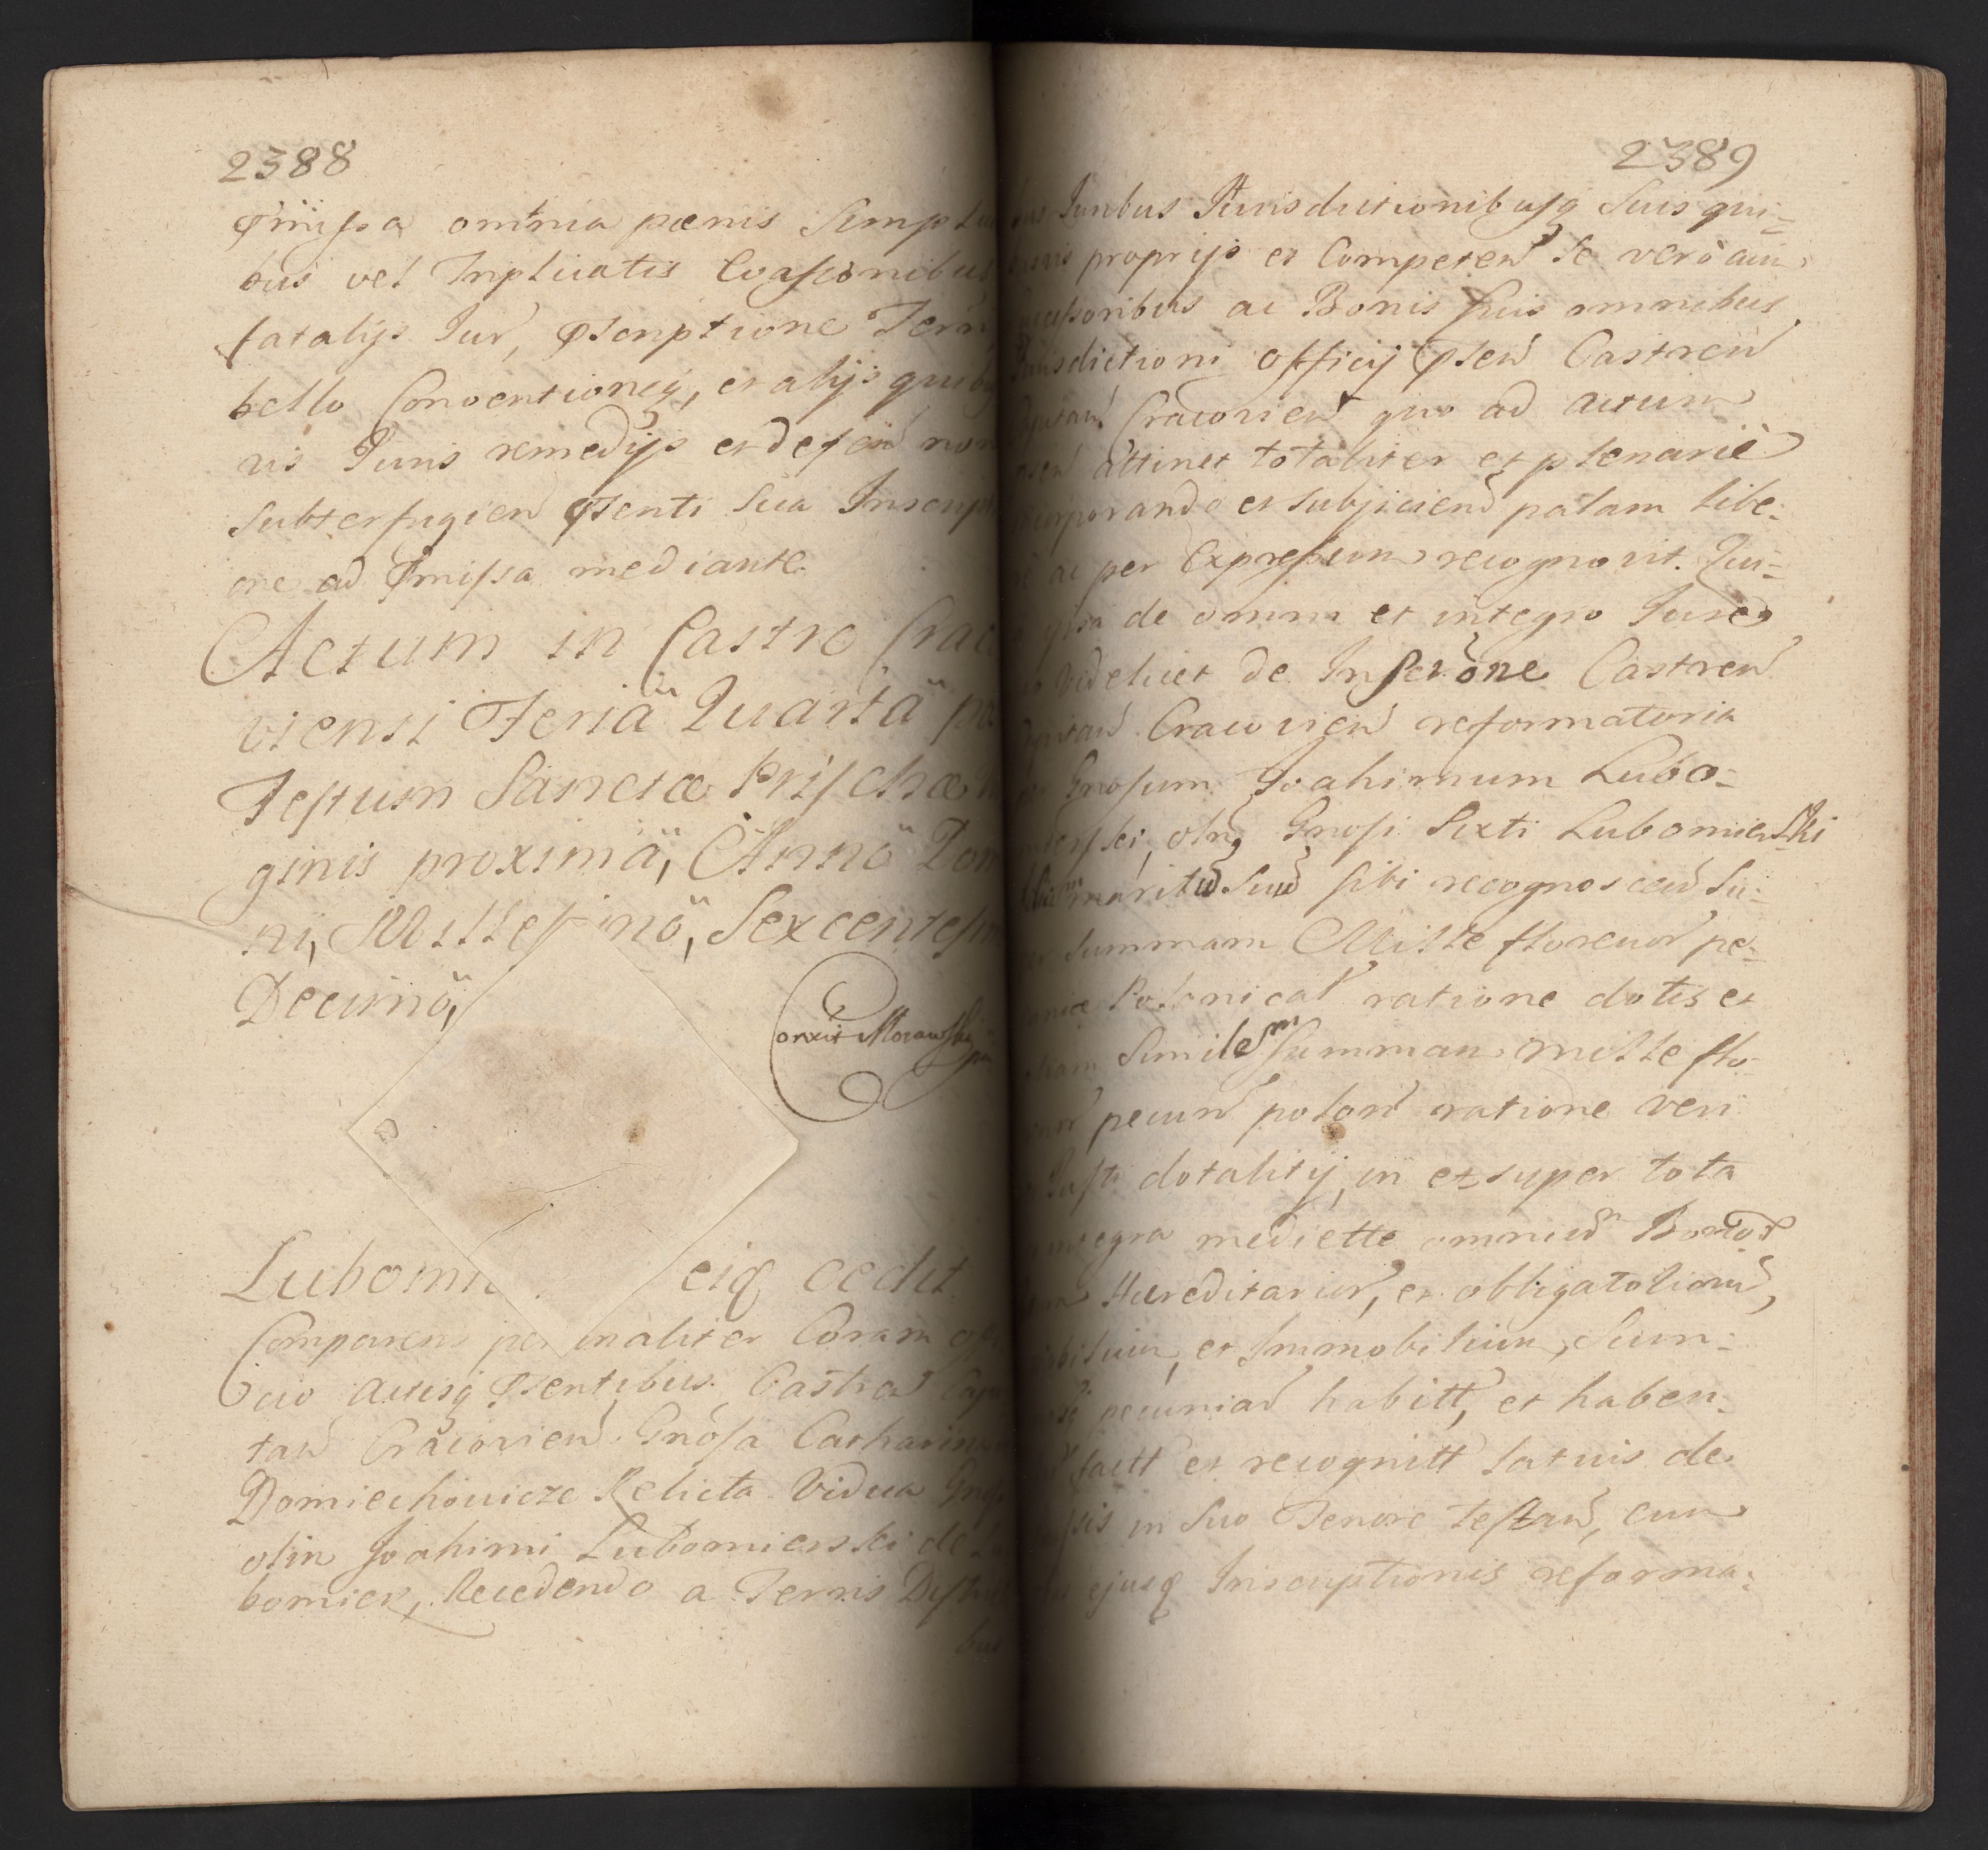 2388
Præmissa omnia pœnis simplici
bus vel Triplicatis Coactionibus
fatalys Jur, Præscriptione Terr
bello Conventioneq, et alys quibus
vis Juris remedys et defen non
subterfugien Præsenti sua Inscripti
one ad Præmissa mediante.
Actum in Castro Crac
viensi Feria Quarta po
Festum Sanctæ Prischæ
ginis proxima, Anno Dom
ni, Millesimo, Sexcentesim
Decimo,
orrexit Morawsky
Lubomi eiq cedit
Comparens per inaliter Coram
cio actisq Præsentibus Castren Capi
tan Cracovien Gnosa Catharina
Domiechowicze Relicta Vidua Gnosi
olim Joahimi Lubomierski de Lu
bomierz, Recedendo a Terris Distri
bus
2389
Juribus Jurisdictionibusq suis qui=
proprys et Competen se vero cum
successoribus ac Bonis suis omnibus
Jurisdictioni officij Præsen Castren
Capitan Cracovien quo ad actum
attinet totaliter et plenarie
Incorporando et Subjiciend palam libe=
ac per Expressum recognovit. Qui=
ipsa de omni et integro Jure
Videlicet de Inscrone Castren
Capitan Cracovien reformatoria
Gnosum Joahimum Lubo=
mierski, olim Gnosi Sixti Lubomierski
maritum suum sibi recognoscen su=
summam Mille florenor pe=
Polonical ratione dotis et
Similem summam mille flo=
pecun polon ratione veri
dotality, in et super tota
integra mediette omnium Bonor
Hæreditarior, et obligatoriorum,
mobilium, et Immobilium, Sum=
pecuniar habitt, et haben=
factt et recognitt latius de
in suo Tenore testan, cum
ejusq Inscriptionis reforma=